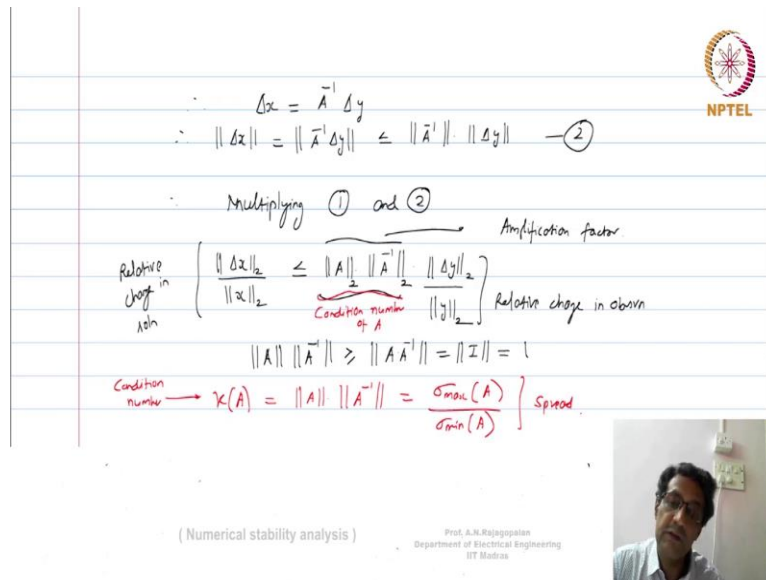 NPTEL
∴ Δx = A⁻¹ Δy
∴ ||Δx|| = ||A⁻¹Δy|| ≤ ||A⁻¹|| · ||Δy|| — ②
∴ Multiplying ① and ②
Amplification factor
Relative change in soln { ||Δx||₂ / ||x||₂ ≤ ||A||₂ · ||A⁻¹||₂ · ||Δy||₂ / ||y||₂ } Relative change in obsvn
Condition number of A
||A|| ||A⁻¹|| ≥ ||A A⁻¹|| = ||I|| = 1
Condition number → κ(A) = ||A|| · ||A⁻¹|| = σmax(A) / σmin(A) ] Spread.
( Numerical stability analysis )
Prof. A.N.Rajagopalan
Department of Electrical Engineering
IIT Madras